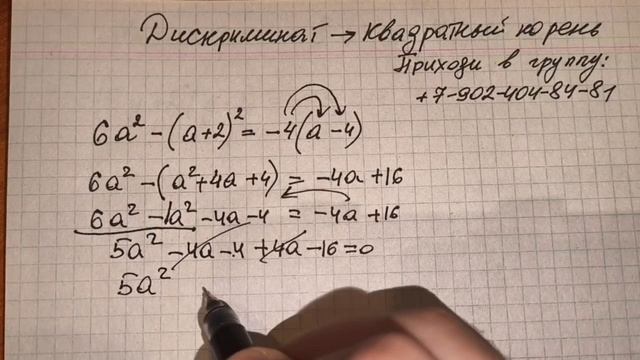 Дискриминат → Квадратный корень
Приходи в группу:
+7-902-404-84-81
6a² - (a+2)² = -4(a-4)
6a² - (a²+4a+4) = -4a+16
6a² - 1a² - 4a - 4 = -4a + 16
5a² - 4a - 4 + 4a - 16 = 0
5a²